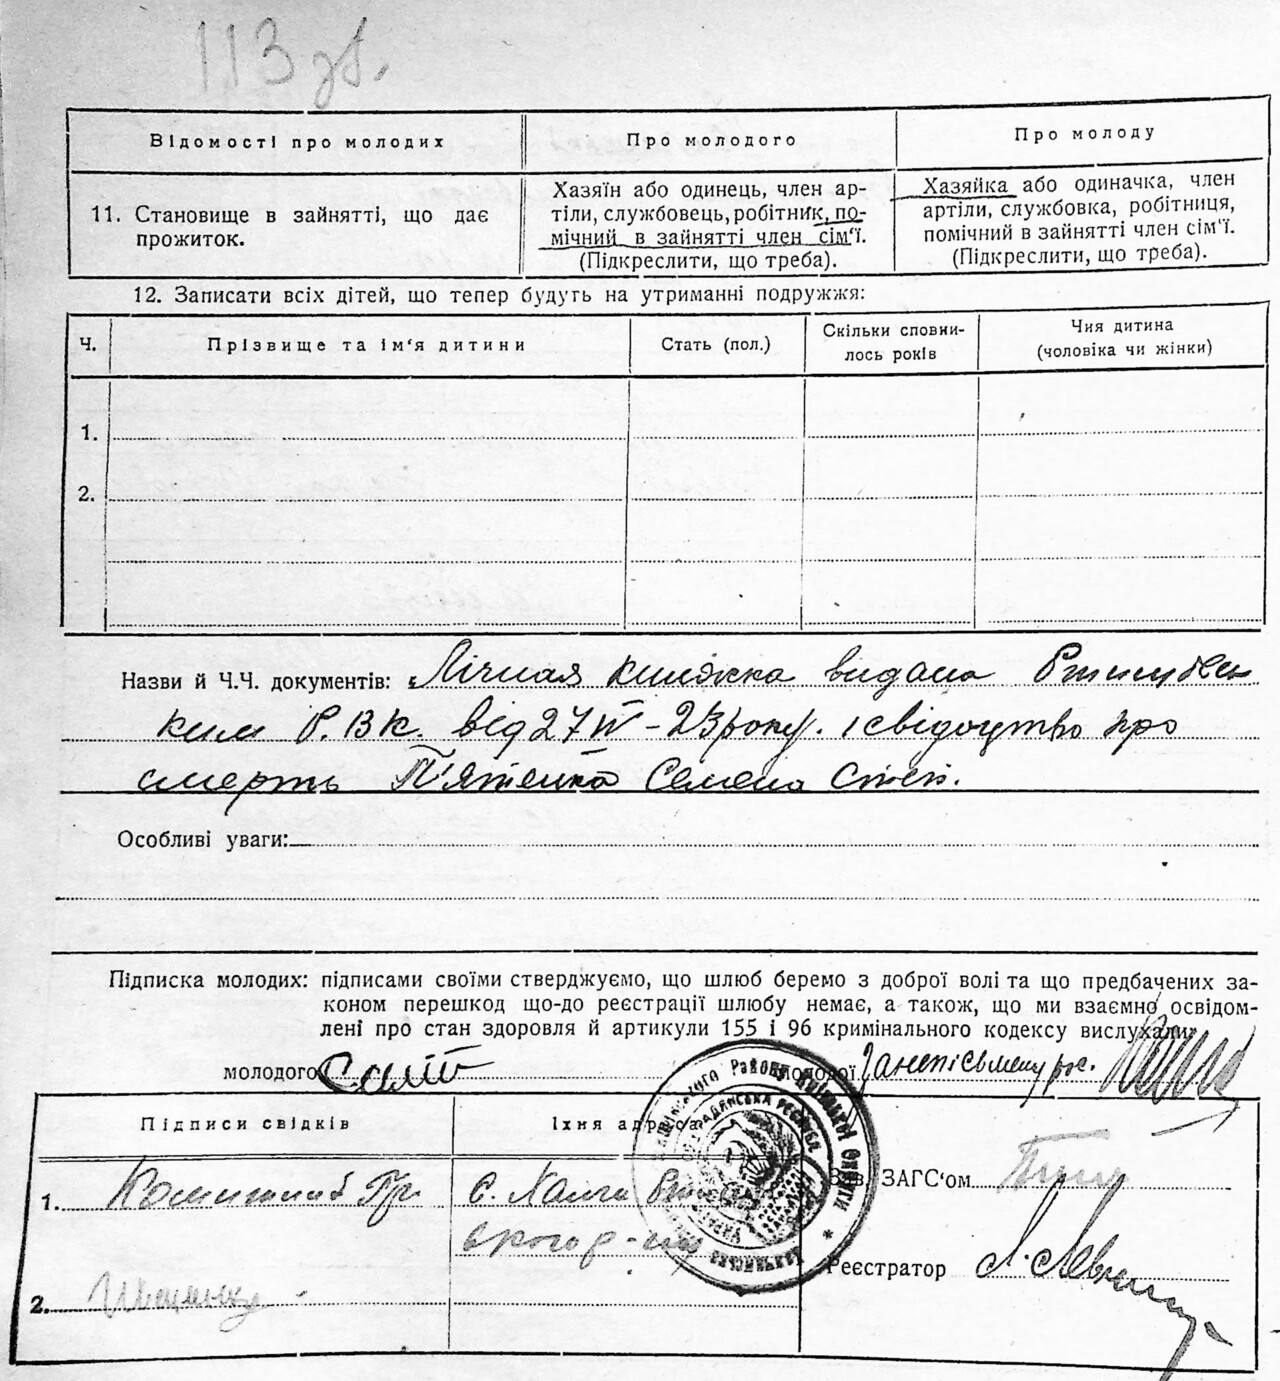 113 зв.
Відомості про молодих
Про молодого
Про молоду
11. Становище в зайнятті, що дає
прожиток.
Хазяїн або одинець, член ар-
тіли, службовець, робітник, по-
мічний в зайнятті член сім'ї.
(Підкреслити, що треба).
Хазяйка або одиначка, член
артіли, службовка, робітниця,
помічний в зайнятті член сім'ї.
(Підкреслити, що треба).
12. Записати всіх дітей, що тепер будуть на утриманні подружжя:
Ч.
Прізвище та ім'я дитини
Стать (пол.)
Скільки сповни-
лось років
Чия дитина
(чоловіка чи жінки)
1.
2.
Назви й Ч.Ч. документів: Лічная книжка видана
ким Р.В.К. від 27/IV-23 року. і свідоцтво про
смерть П'ятенка Семена Степ.
Особливі уваги:
Підписка молодих: підписами своїми стверджуємо, що шлюб беремо з доброї волі та що предбачених за-
коном перешкод що-до реєстрації шлюбу немає, а також, що ми взаємно освідом-
лені про стан здоровля й артикули 155 і 96 кримінального кодексу вислухали
молодого
молодої за неписьмену рос.
Підписи свідків
Їхня адреса
1.
с.
2.
Зав. ЗАГС'ом
Реєстратор